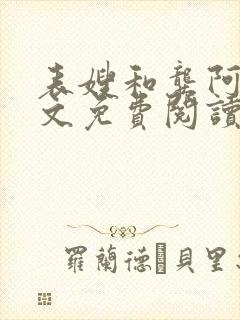 表嫂和龔阿
文免費閱讀
羅蘭德·貝里